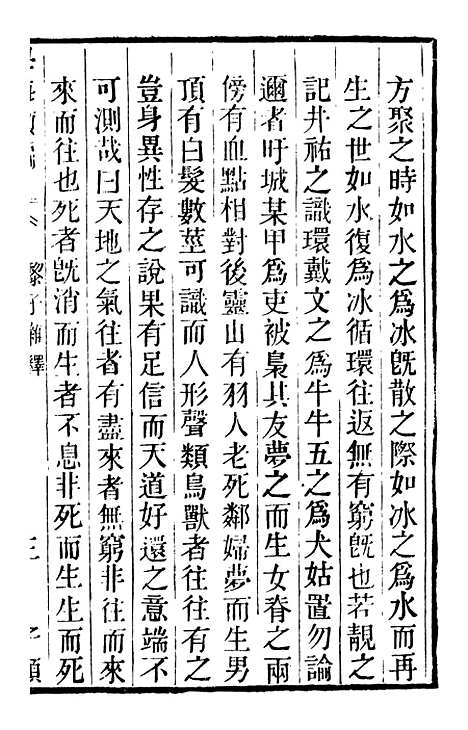 方聚之時如水之爲冰旣散之際如冰之爲水而再
生之世如水復爲冰循環往返無有窮旣也若靚之
記井祐之識環戴文之爲牛牛五之爲犬姑置勿論
邇者旴城某甲爲吏被梟其友夢之而生女脊之兩
傍有血點相對後靈山有羽人老死鄰婦夢而生男
頂有白髮數莖可識而人形聲類鳥獸者往往有之
豈身異性存之說果有足信而天道好還之意端不
可測哉曰天地之氣往者有盡來者無窮非往而來
來而往也死者旣消而生者不息非死而生生而死
海 黎子雜釋 三